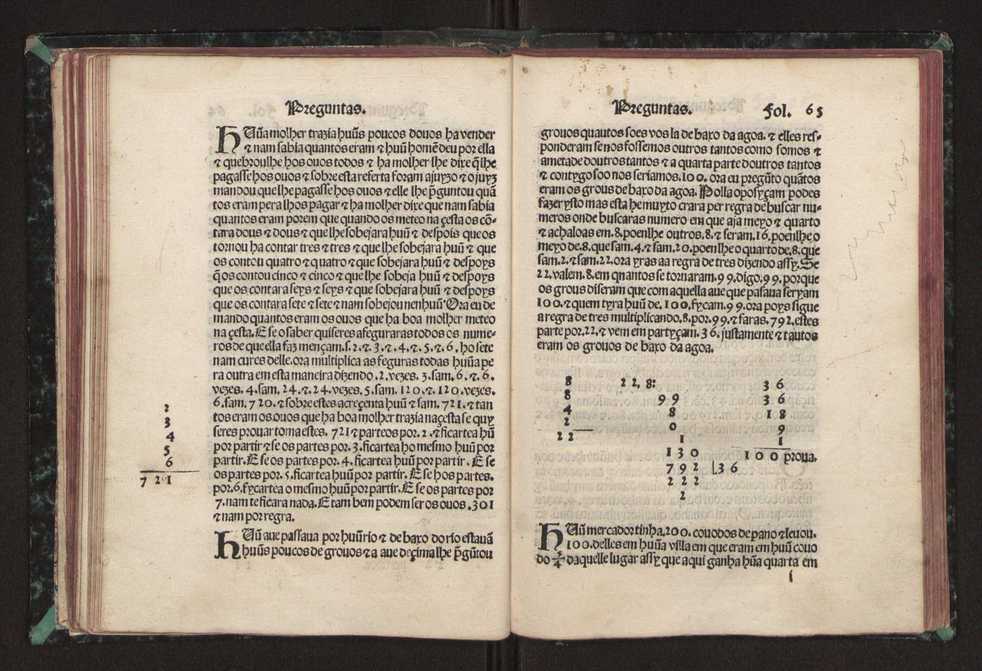 Preguntas.
HUũa molher trazia huũs poucos douos ha vender
⁊ nam sabia quantos eram ⁊ huũ homẽ deu por ella
⁊ quebroulhe hos ouos todos ⁊ ha molher lhe dixe q̃ lhe
pagasse hos ouos ⁊ sobre esta referta foram a juyzo ⁊ o juyz
mandou que lhe pagasse hos ouos ⁊ elle lhe p̃guntou quã
tos eram pera lhos pagar ⁊ ha molher dixe que nam sabia
quantos eram porem que quando os meteo na çesta os cõ-
tara dous ⁊ dous ⁊ que lhe sobejara huũ ⁊ despois que os
tornou ha contar tres ⁊ tres ⁊ que lhe sobejara huũ ⁊ que
os contou quatro ⁊ quatro ⁊ que sobejara huũ ⁊ despoys
q̃ os contou cinco ⁊ cinco ⁊ que lhe sobeja huũ ⁊ despoys
que os contara seys ⁊ seys ⁊ que sobejara huũ ⁊ despoys
que os contara sete ⁊ sete ⁊ nam sobejou nenhuũ Ora eu de
mando quantos eram os ouos que ha boa molher meteo
na çesta. E se o saber quiseres afeguraras todos os nume-
ros de que ella faz mençam.s.2.⁊.3.⁊.4.⁊.5.⁊.6. ho sete
nam cures delle. ora multiplica as feguras todas huũa pe
ra outra em esta maneira dizendo.2.vezes.3.sam.6.⁊.6.
vezes.4.sam.24.⁊.24.vezes.5.sam.120.⁊.120.vezes.
6.sam.720.⁊ sobre estes acreçenta huũ ⁊ sam.721.⁊ tan
tos eram os ouos que ha boa molher trazia na çesta se quy
seres prouar toma estes.721 ⁊ parte os por.2.⁊ ficartea hũ
por partir ⁊ se os partes por.3.ficartea ho mesmo huũ por
partir. E se os partes por.4.ficartea huũ por partir. E se
os partes por.5.ficartea huũ por partir. E se hos partes.
por.6.fycartea o mesmo huũ por partir. E se os partes por
7.nam te ficara nada. E tam bem podem ser os ouos.301
⁊ nam por regra.
2
3
4
5
6
721
HUũ aue passaua por huũ rio ⁊ de baxo do rio estauã
huũs poucos de grouos ⁊ a aue de çima lhe p̃gũtou
Preguntas. Fol. 65
grouos quautos soes vos la de baxo da agoa.⁊ elles res-
ponderam se nos fossemos outros tantos como somos ⁊
ametade doutros tantos ⁊ a quarta parte doutros tantos
⁊ contygo soo nos seriamos.100.ora eu pregũto quãtos
eram os grous de baxo da agoa. Polla oposyçam podes
fazer ysto mas esta he muyto crara per regra de buscar nu-
meros onde buscaras numero em que aja meyo ⁊ quarto
⁊ achaloas em.8.poenlhe outros.8.⁊ seram.16.poenlhe o
meyo de.8.que sam.4.⁊ sam.20.poenlhe o quarto de.8.que
sam.2.⁊ sam.22.ora yras aa regra de tres dizendo assy. Se
22.valem.8.em qnantos se tornaram.99.digo.99.porque
os grous diseram que com aquella aue que pasaua seryam
100.⁊ quem tyra huũ de.100.fycam.99.ora poys sigue
a regra de tres multiplicando.8.por.99.⁊ faras.792.estes
parte por.22.⁊ vem em partyçam.36.justamente ⁊ tautos
eram os grouos de baxo da agoa.
8 22.8: 36
8 99 36
4 8 18
2 0 9
22 1 1
130 100 prova.
792 ⌊36
222
2
HUũ mercador tinha.200.couodos de pano ⁊ leuou.
100.delles em huũa villa em que eram em huũ couo
do ¼ daquelle lugar assy que aqui ganha hũa quarta em
i